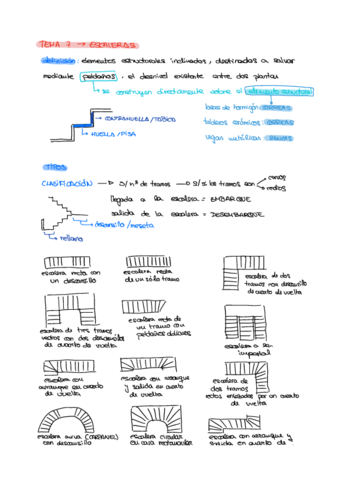 TEMA 7 → ESCALERAS
definición: elementos estructurales inclinados, destinados a salvar
mediante peldaños, el desnivel existente entre dos plantas
se construyen directamente sobre el elemento estructural
losas de hormigón
CONTRAHUELLA/TABICA
HUELLA/PISA
tableros cerámicos
vigas metálicas
TIPOS
CLASIFICACIÓN → S/nº de tramos → S/si los tramos son
curvos
rectos
llegada a la escalera = EMBARQUE
salida de la escalera = DESEMBARQUE
descansillo/meseta
rellano
escalera recta con
un descansillo
escalera recta
de un sólo tramo
escalera de dos
tramos con descansillo
de cuarto de vuelta
escalera de tres tramos
rectos con dos descansillos
de cuarto de vuelta
escalera recta de
un tramo con
peldaños oblicuos
escalera
imperial
escalera con
arranque en cuarto
de vuelta
escalera con arranque
y salida en cuarto
de vuelta
escalera de
dos tramos
rectos enlazados por un cuarto
de vuelta
escalera curva
con descansillo
escalera circular
en caja rectangular
escalera con arranque y
salida en cuarto de